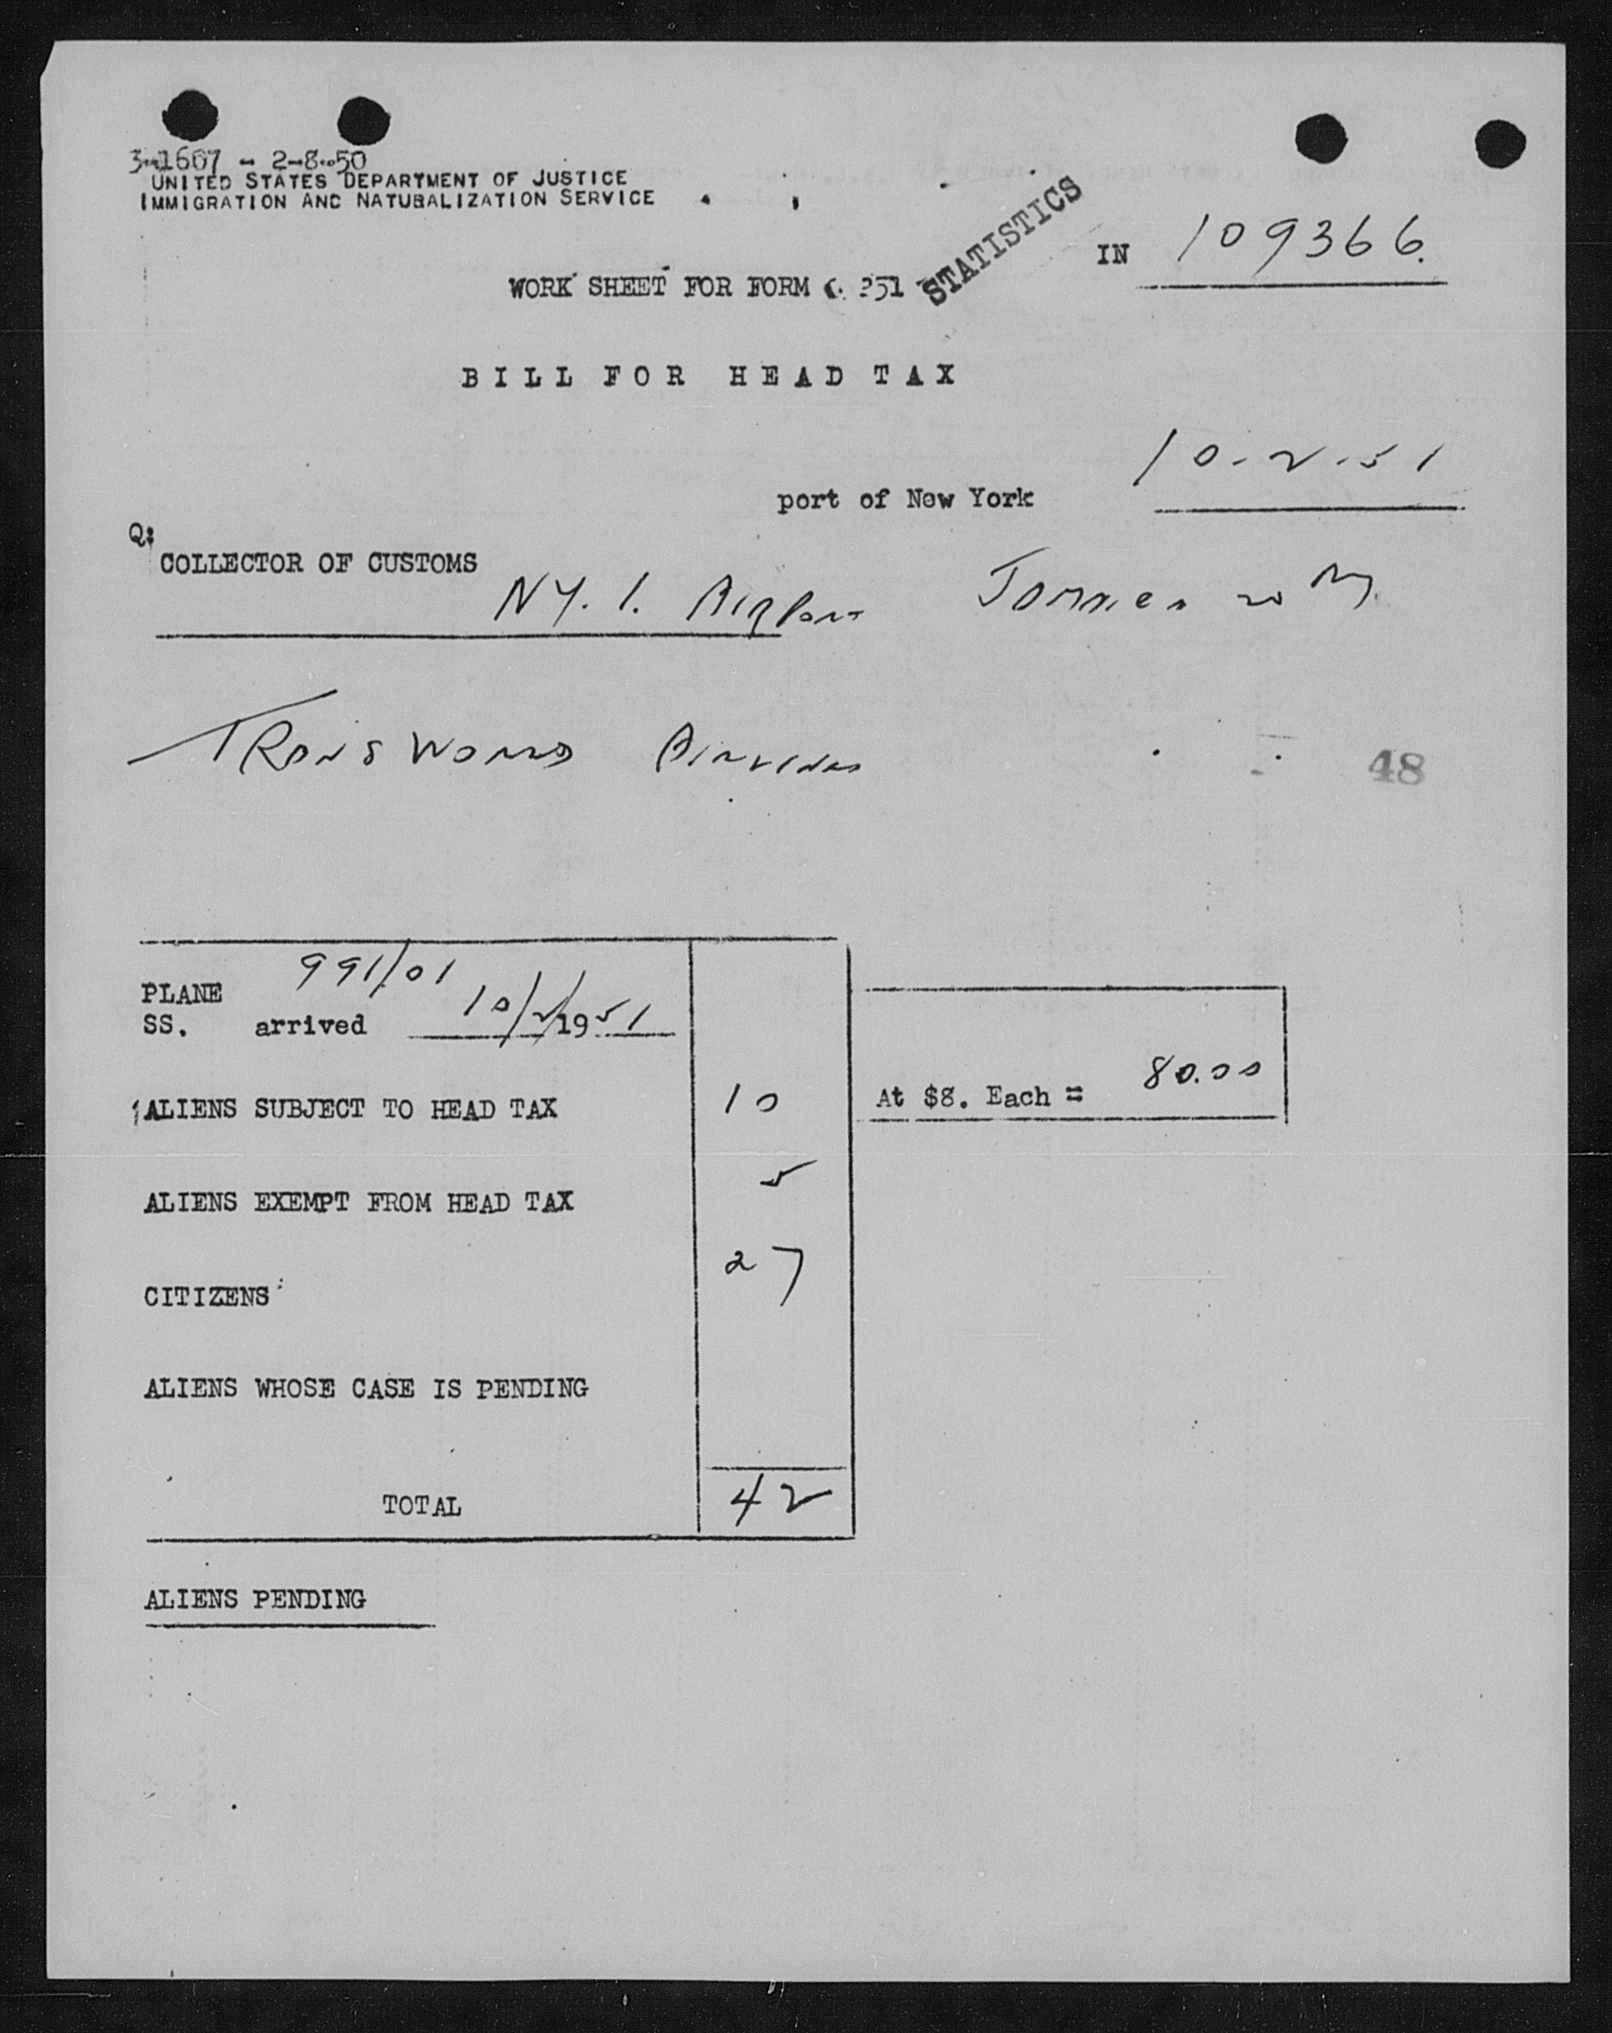 3-1607 - 2-8-50
UNITED STATES DEPARTMENT OF JUSTICE
IMMIGRATION AND NATURALIZATION SERVICE
STATISTICS
IN 109366.
WORK SHEET FOR FORM 351
BILL FOR HEAD TAX
10-2-51
port of New York
Q:
COLLECTOR OF CUSTOMS
NY. I. Airport
Trans World Airlines
48
PLANE 991/01
SS. arrived 10/2/1951
ALIENS SUBJECT TO HEAD TAX 10 At $8. Each = 80.00
ALIENS EXEMPT FROM HEAD TAX 5
CITIZENS 27
ALIENS WHOSE CASE IS PENDING
TOTAL 42
ALIENS PENDING